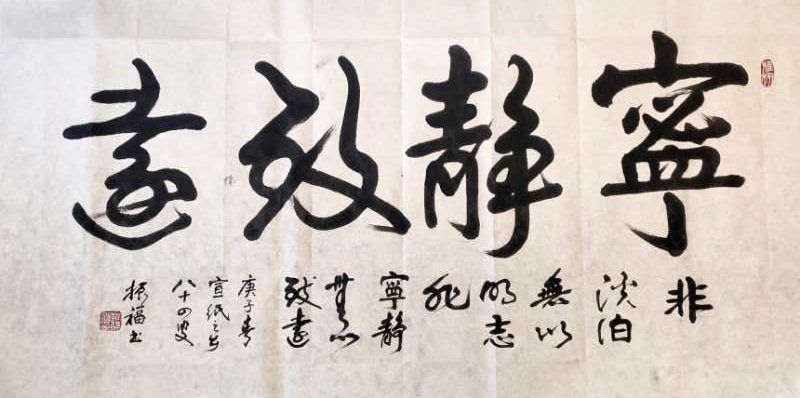 寧靜致遠
非
淡泊
無以
明志
非
寧靜
無以
致遠
庚子春
宣紙之
八十四叟
振福书